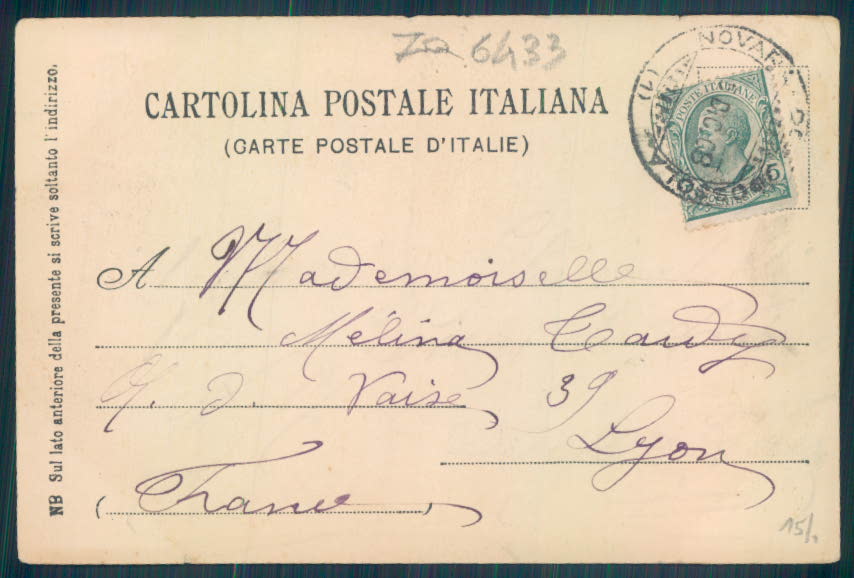 ZO 6433
CARTOLINA POSTALE ITALIANA
(CARTE POSTALE D'ITALIE)
NOVARA
(1)
DIC 08
POSTE ITALIANE
5
NB Sul lato anteriore della presente si scrive soltanto l'indirizzo.
A Mademoiselle
Mélina
Q. d. Vaise 39
Lyon
(France)
15/.